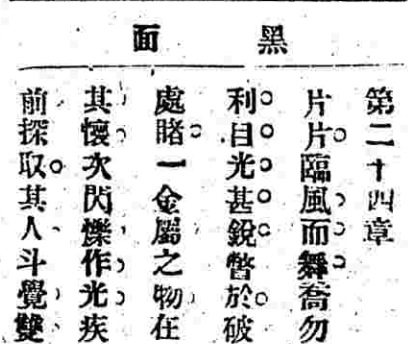 黑面
第二十四章
片片臨風而舞喬勿
利目光甚銳瞥於破
處睹一金屬之物在
其懷次閃爍作光疾
前探取其人斗覺雙